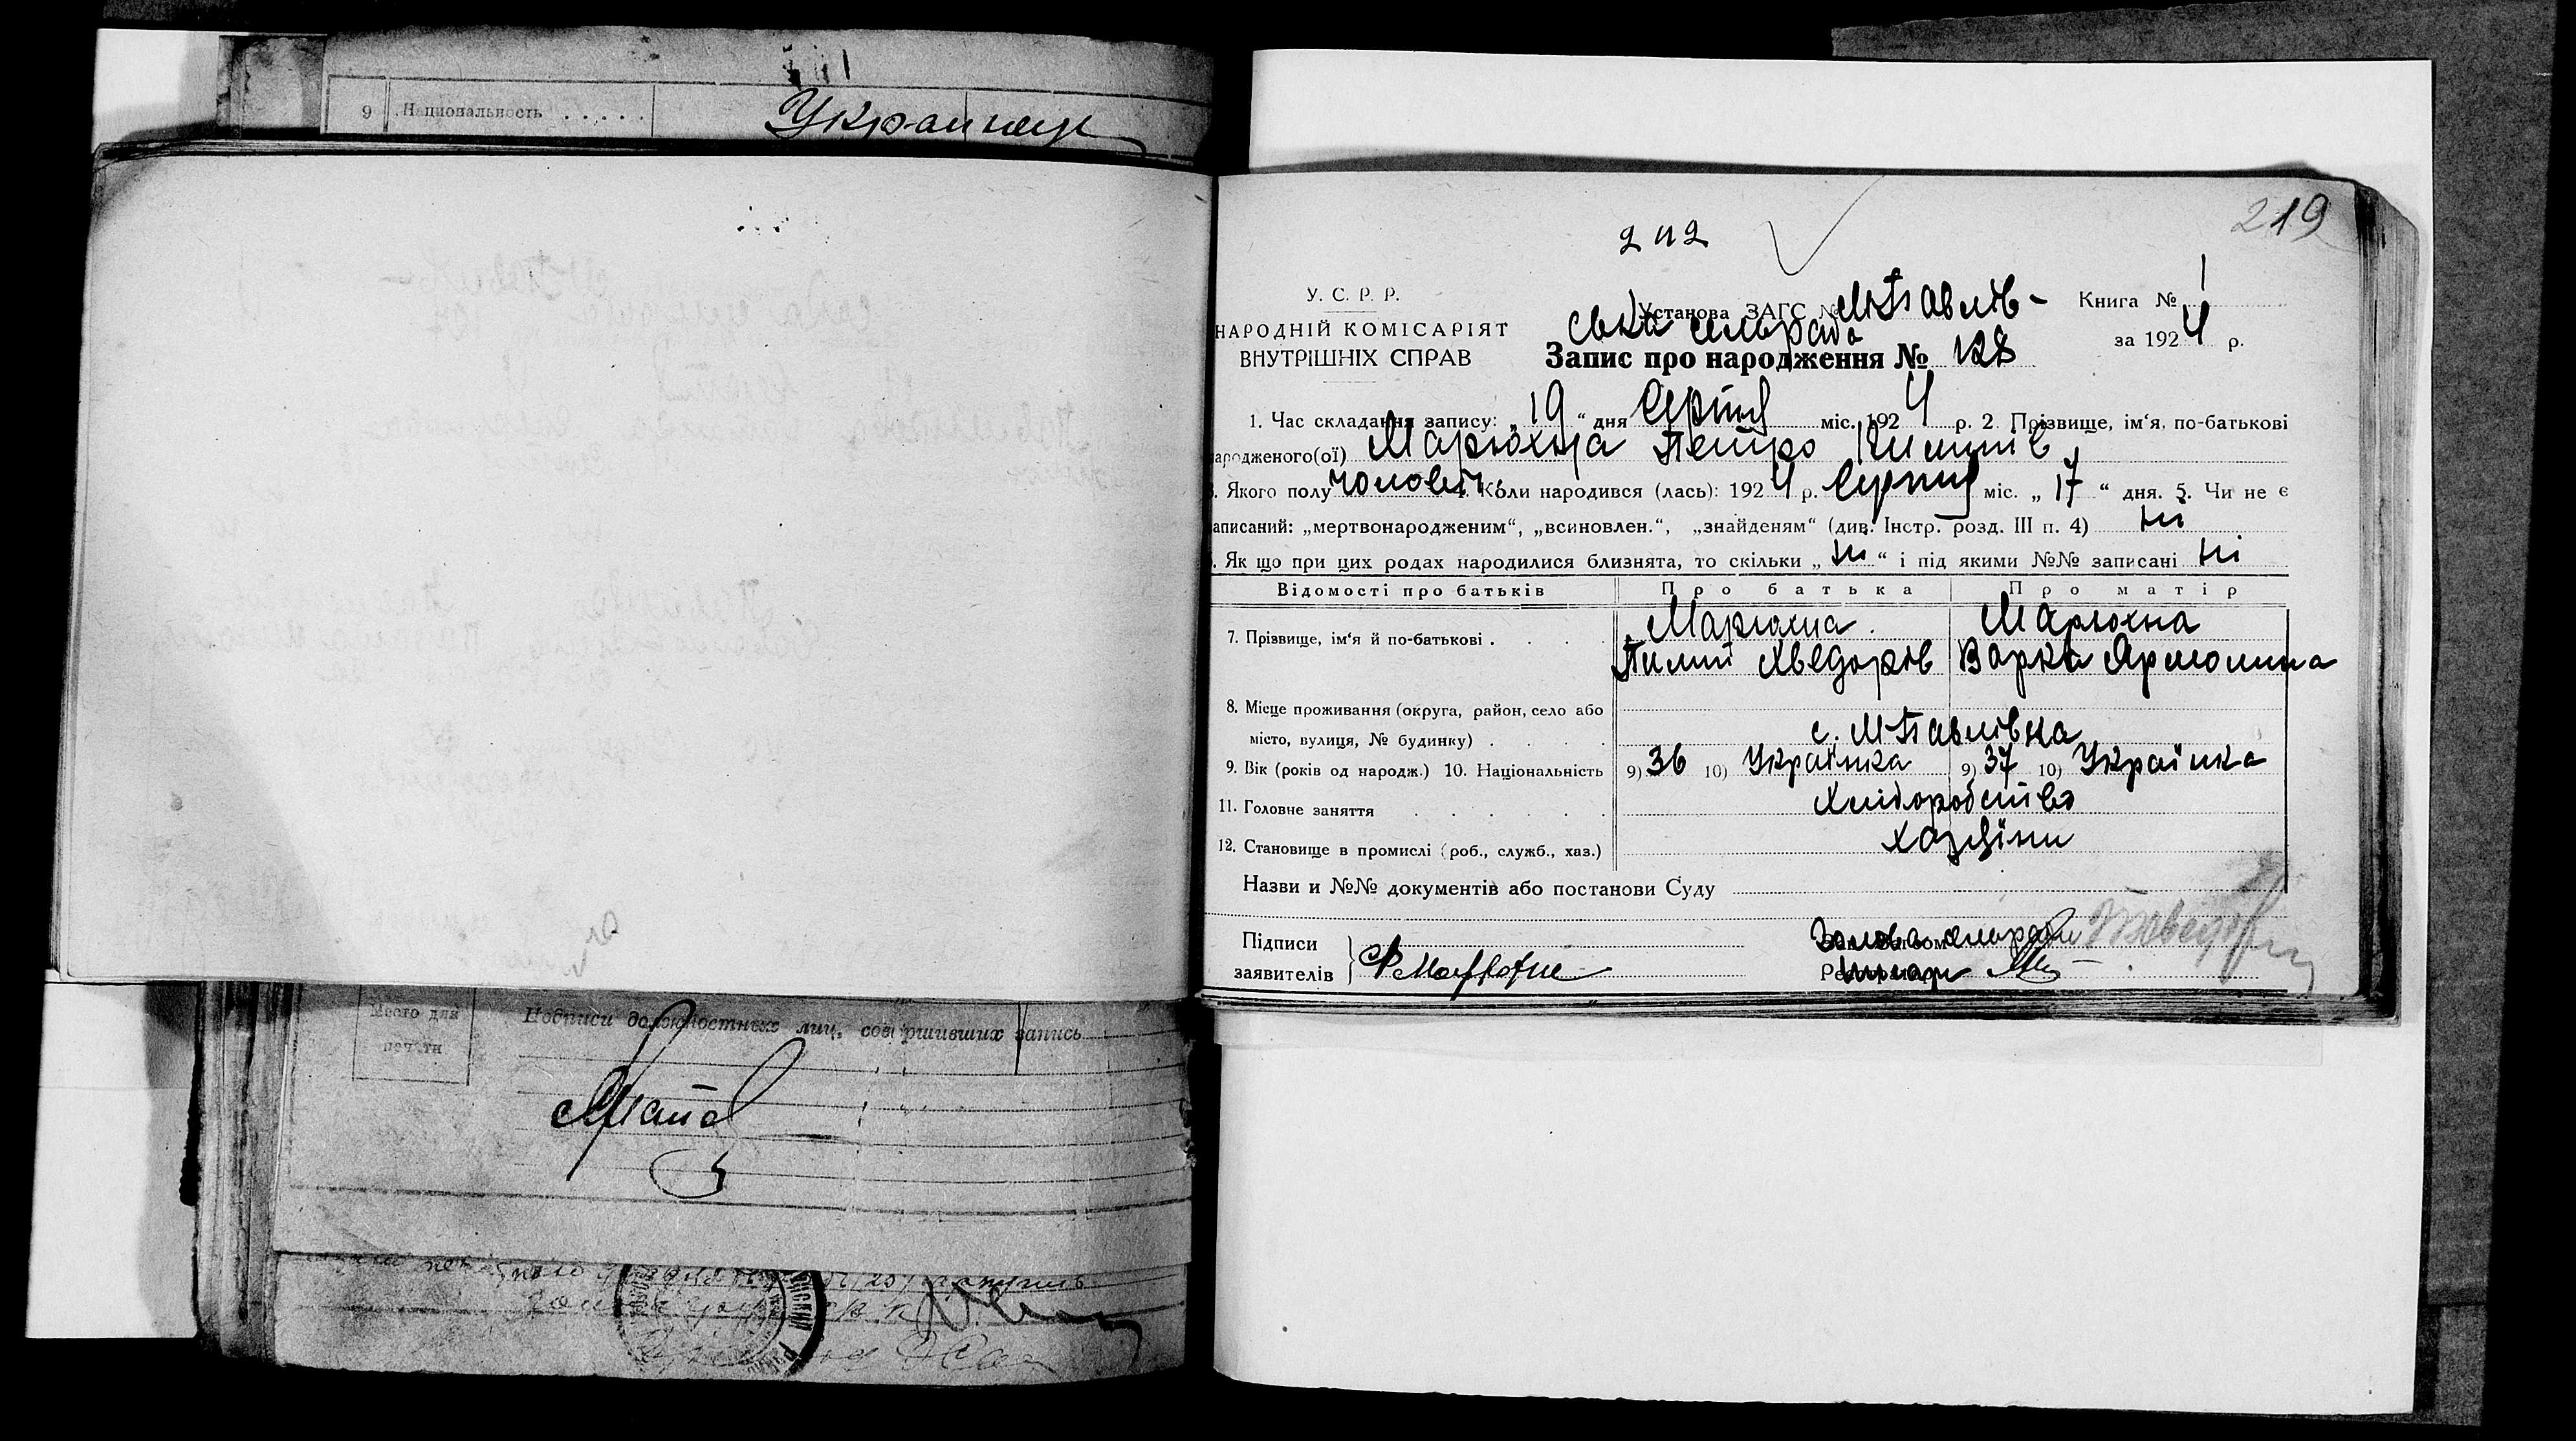 9 Национальность . . . . . Украинец
219
242
У. С. Р. Р.
НАРОДНІЙ КОМІСАРІЯТ
ВНУТРІШНІХ СПРАВ
Установа ЗАГС № М Павлів-
ська сельрада
Книга № 1
за 1924 р.
Запис про народження № 128
1. Час складання запису: „19“ дня Серпня міс. 1924 р. 2 Прізвище, ім‘я, по-батькові
ародженого(ої) Марюхна Петро Пилипів
3. Якого полу чоловіч. 4. Коли народився (лась): 1924 р. Серпня міс. „17“ дня. 5. Чи не є
аписаний: „мертвонародженим“, „всиновлен.“, „знайденям“ (див. Інстр. розд. III п. 4) ні
6. Як що при цих родах народилися близнята, то скільки „ні“ і під якими №№ записані ні
Відомості про батьків Про батька Про матір
7. Прізвище, ім‘я й по-батькові . . . . Марюхна Марюхна
Пилип Хведорів Варка Ярмолина
8. Місце проживання (округа, район, село або
місто, вулиця, № будинку) . . . . с. М Павлівка
9. Вік (років од народж.) 10. Національність 9) 36 10) Українка 9) 37 10) Українка
11. Головне заняття . . . . . . Хліборобство
12. Становище в промислі (роб., служб., хаз.) хазяїни
Назви и №№ документів або постанови Суду
Підписи Голова сільради
заявителів
Место для
печати
Подписи должностных лиц, совершивших запись